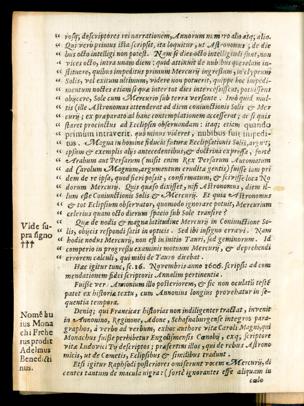 rosq; descriptores rei narrationem, Annorum nim. vo alio atq; alio.
Qui verò primus ista scripsit, ita loquitur, ut Astronomus; de die
bus octo intelligi non potest. Nam si dies octo intelligendi sint, non
vices octo, intra unam diem: quid attinuit de nubibus querelam in-
stituere, quibus impeditus primum Mercurij ingressum, in clypeum
Solis, vel exitum ultimum, videre non potuerit, quippe hoc impedi-
mentum noctes etiam se quæ inter tot dies intercessissent, potuissent
objicere, Sole cum Mercurio sub terra versante. Imò quid mul-
tis? ille Astronomus attenderat ad diem conjunctionis Solis & Mer
curij: ex præparato ad hanc contemplationem accesserat; ac si quis
staret procinctus ad Eclipsin observandam: itaq; etiam quando
primùm intraverit, quò minus videret, nubibus fuit impedi-
tus. Magna in homine fiducia futuræ Eclipsationis Solis, atque,
ipsum & exemplis alijs antecedentibus, & doctrina ex professo, fortè
Arabum aut Persarum (misit enim Rex Persarum Automaton
ad Carolum Magnum, argumentum erudita gentis) fuisse im pri
dem de re ipsa, quod fieri possit, confirmatum, & scripsisse Ico
dorum Mercurij. Quis quæso dixisset, nisi Astronomus, diem il-
lum esse Conjunctionis Solis & Mercurij. Et quia Astronomus
& tot Eclipsium observator, quomodo ignorare potuit, Mercurium
celerius quàm octo dierum spacio sub Sole transire?
Quæ de nodis & magna latitudine Mercurij in Conjunctione So-
lis, objeci respondi satis in opticis. Sed ibi insigno erravi. Nam
hodie nodus Mercurij, non est in initio Tauri, sed geminorum. Id
comperio in progressu examinis motuum Mercurij, & deprehendi
errorem calculi, qui mihi de Tauro dixerat.
Hæc igitur tunc, s. 16. Novembris anno 1606. scripsi: ad com
mendationem fidei scriptoris Annalium pertinentia.
Fuisse verò Annonium illo posteriorem, & sic non oculatū testē
patet ex historia textu, cum Annonius longius provehatur in se-
quentia tempora.
Deniq; qui Francicas historias non indiligenter tractat, invenit
in Annonio, Reginone, Adone, Schafnaburgense integros para-
graphos, à verbo ad verbum, ex hoc authore vitæ Caroli Magni, qui
Monachus fuisse perhibetur Engolismensis Cœnobij, ejusq, scriptore
vitæ Ludovici Py descriptos; præsertim illos, qui de rebus Astrono
micis, ut de Cometis, Eclipsibus & similibus tradunt.
Etsi igitur Raphsodi posteriores omiserunt vocem Mercurij, di
centes tantum de macula nigra: (fortè ignorantes esse aliquam in
cœlo
Vide su-
pra signo
†††
Nomē hu
ius Mona
chi Frehe
rus prodit
Adelmus
Benedicti
nus.